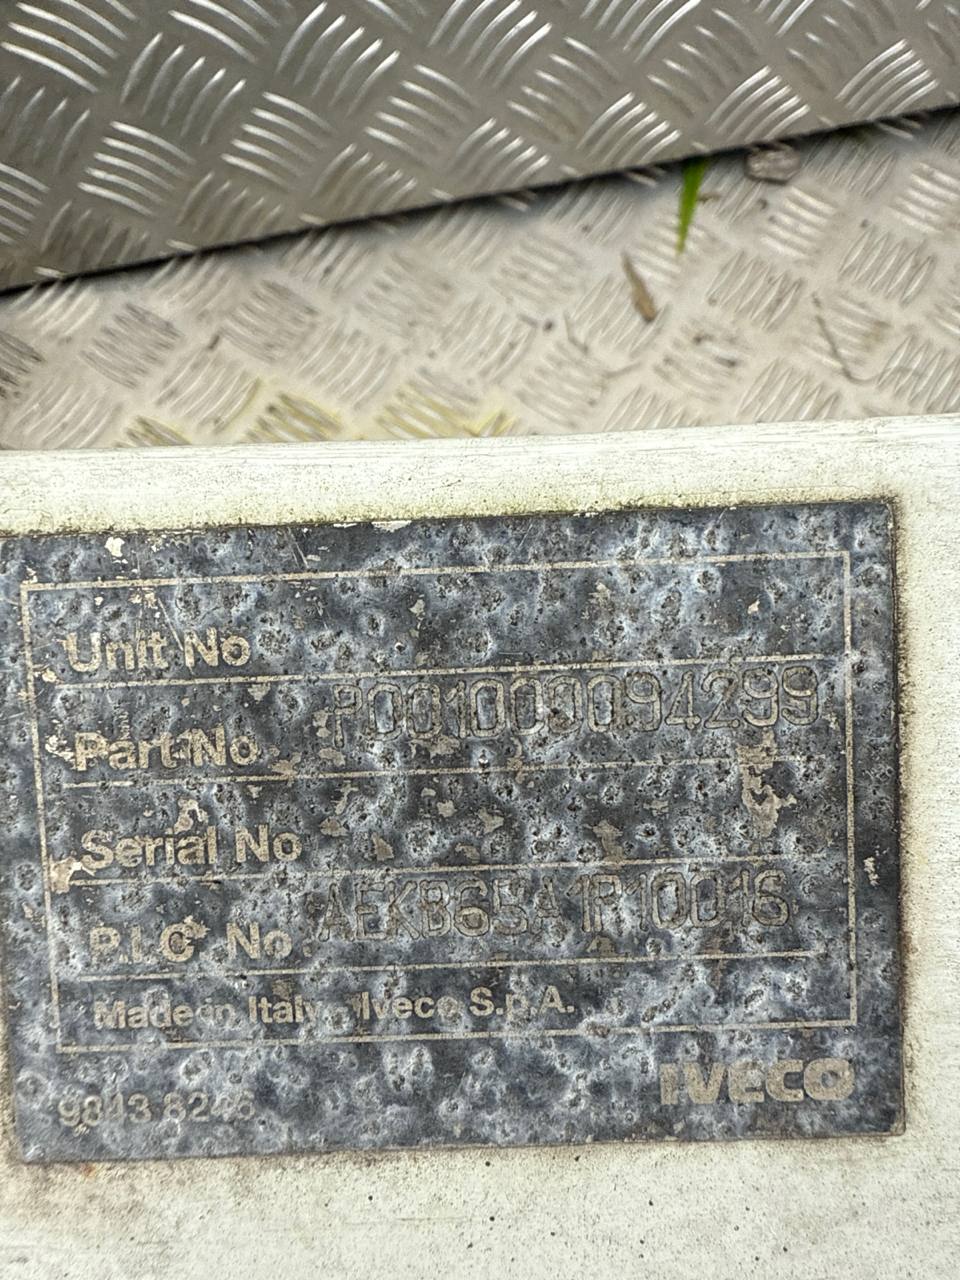 Unit No
Part No P001000094299
Serial No
P.I.C No. AEKB65A1P10016
Made in Italy Iveco S.p.A.
IVECO
9843 8246